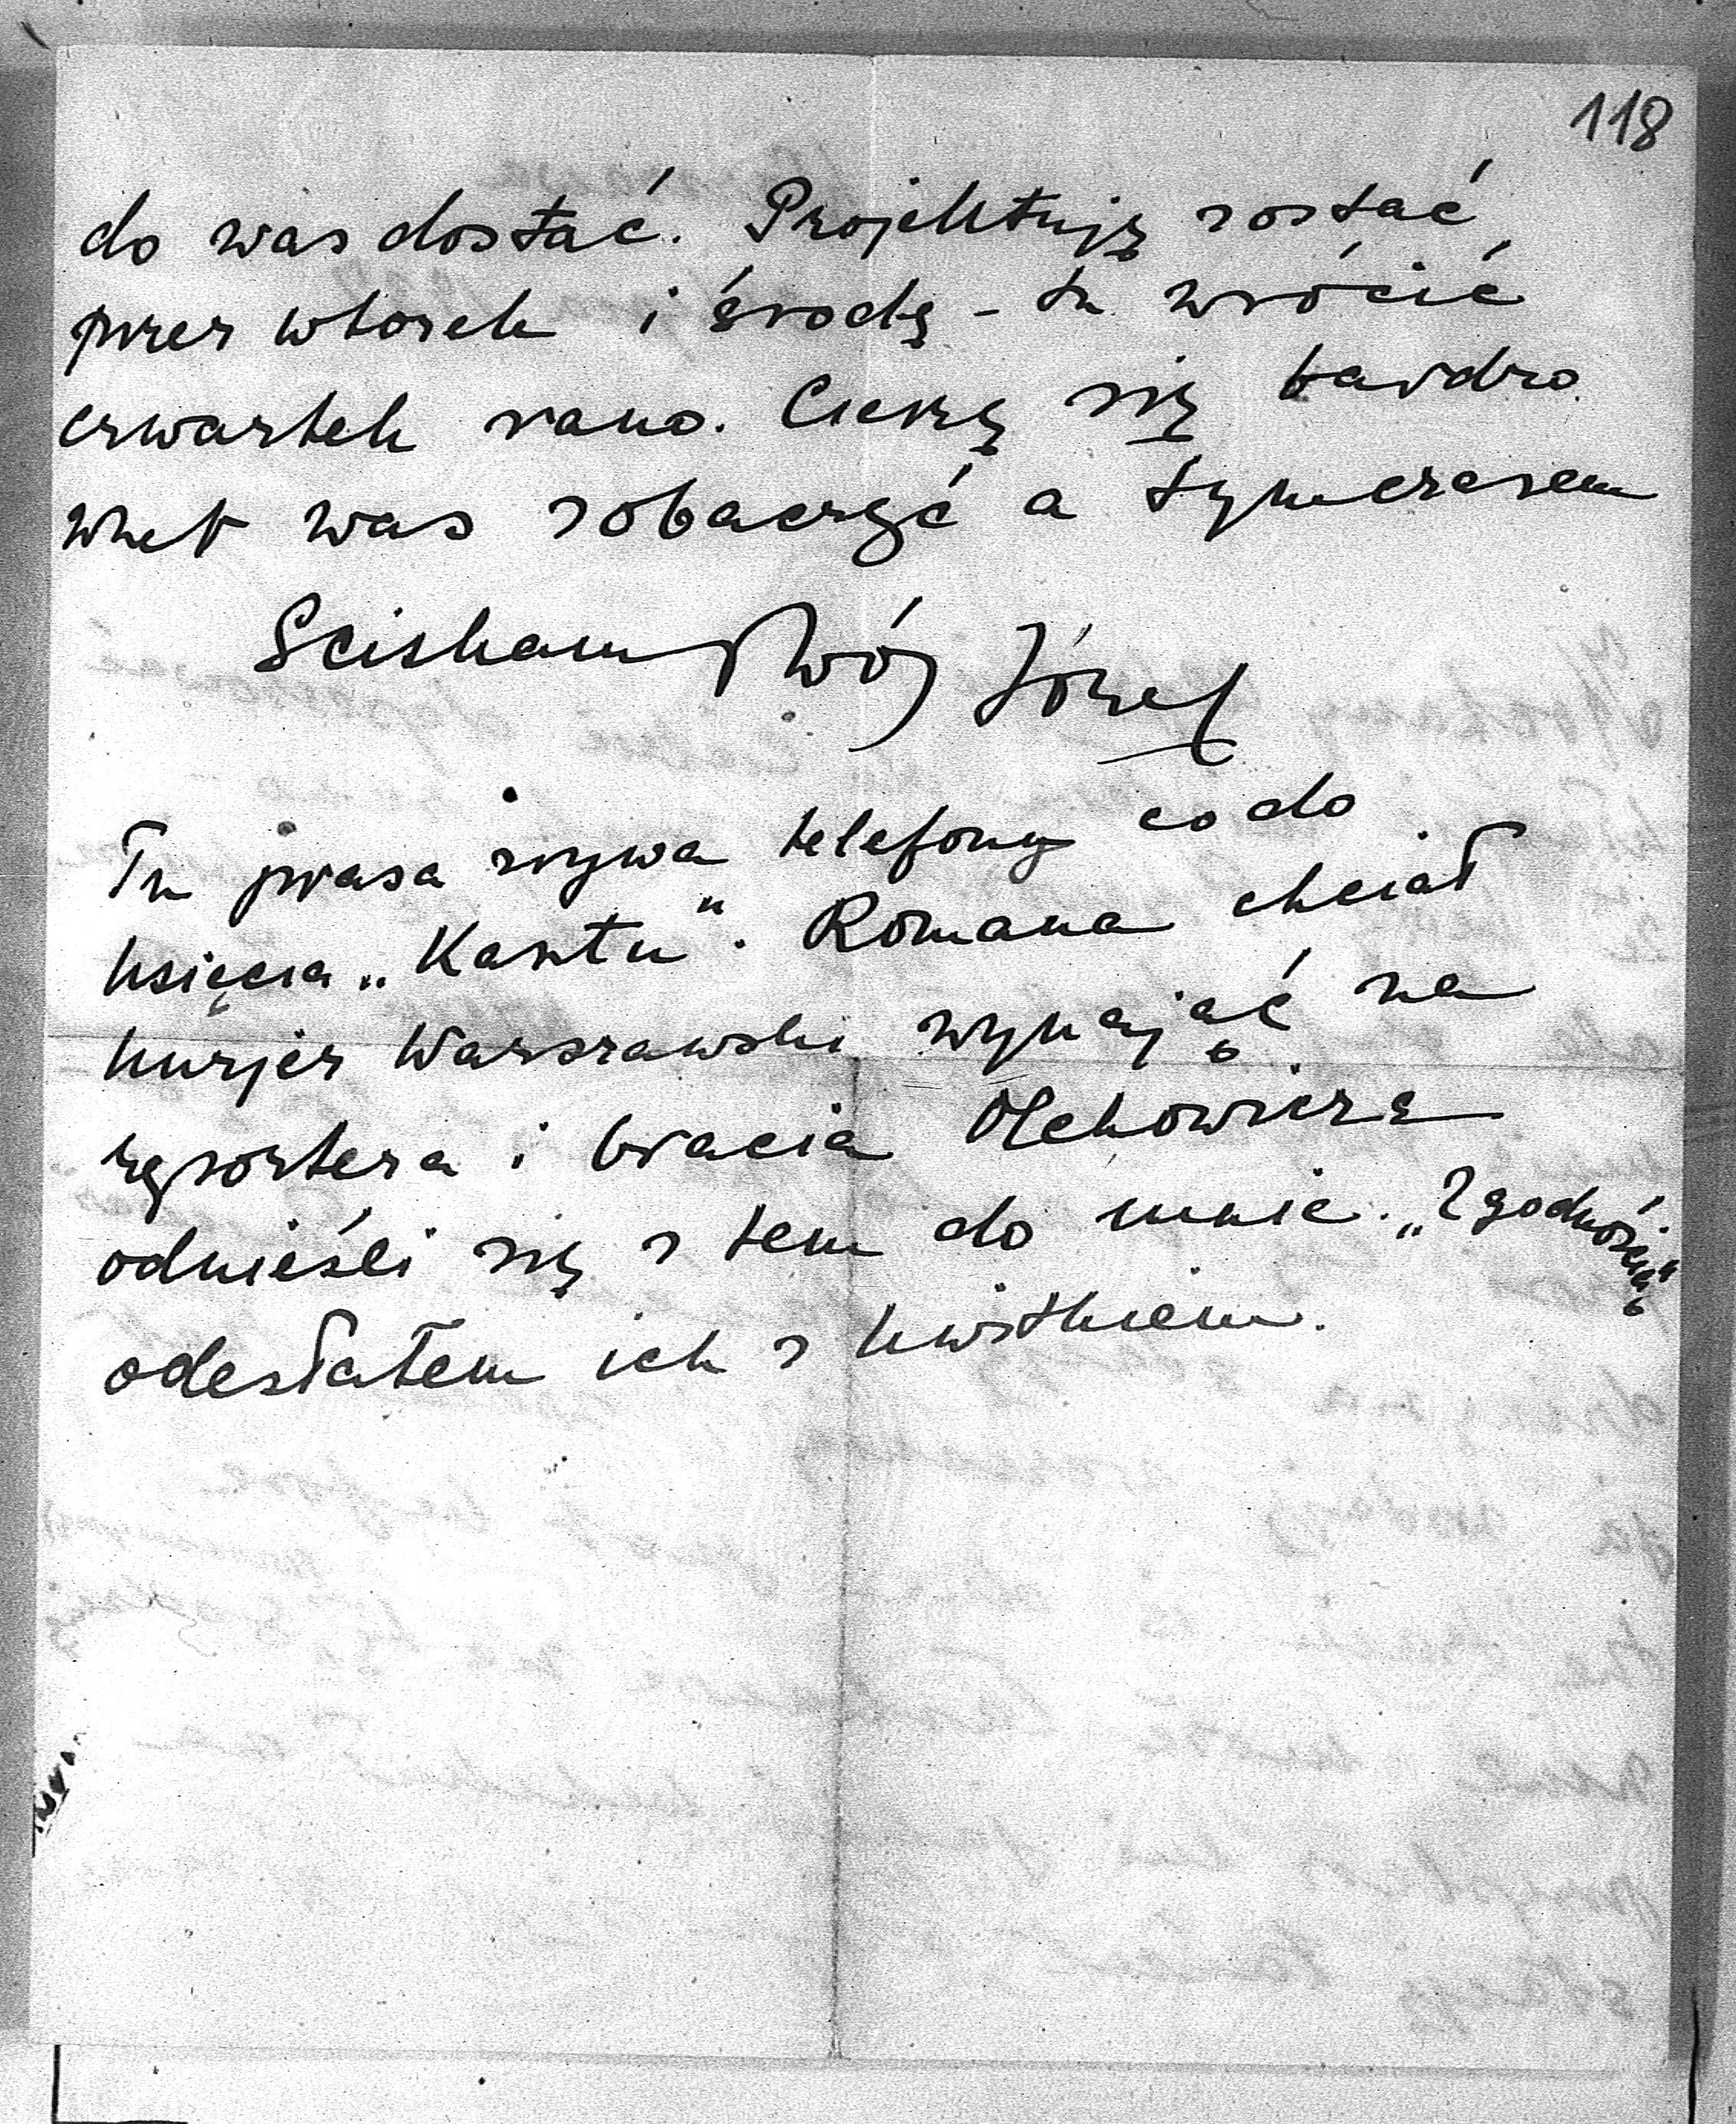 118
do was dostać. Projektuję zostać
przez wtorek i środę - tu wrócić
czwartek rano. Cieszę się bardzo
wnet was zobaczyć a tymczasem
Sciskam Twój Józef
Tu prasa zrywa telefony co do
księcia „Kasztu". Romana chciał
kurjer Warszawski wynająć na
reportera i bracia Olchowicze
odnieśli się z tem do mnie. „Zgodnością"
odesłałem ich z kwitkiem.